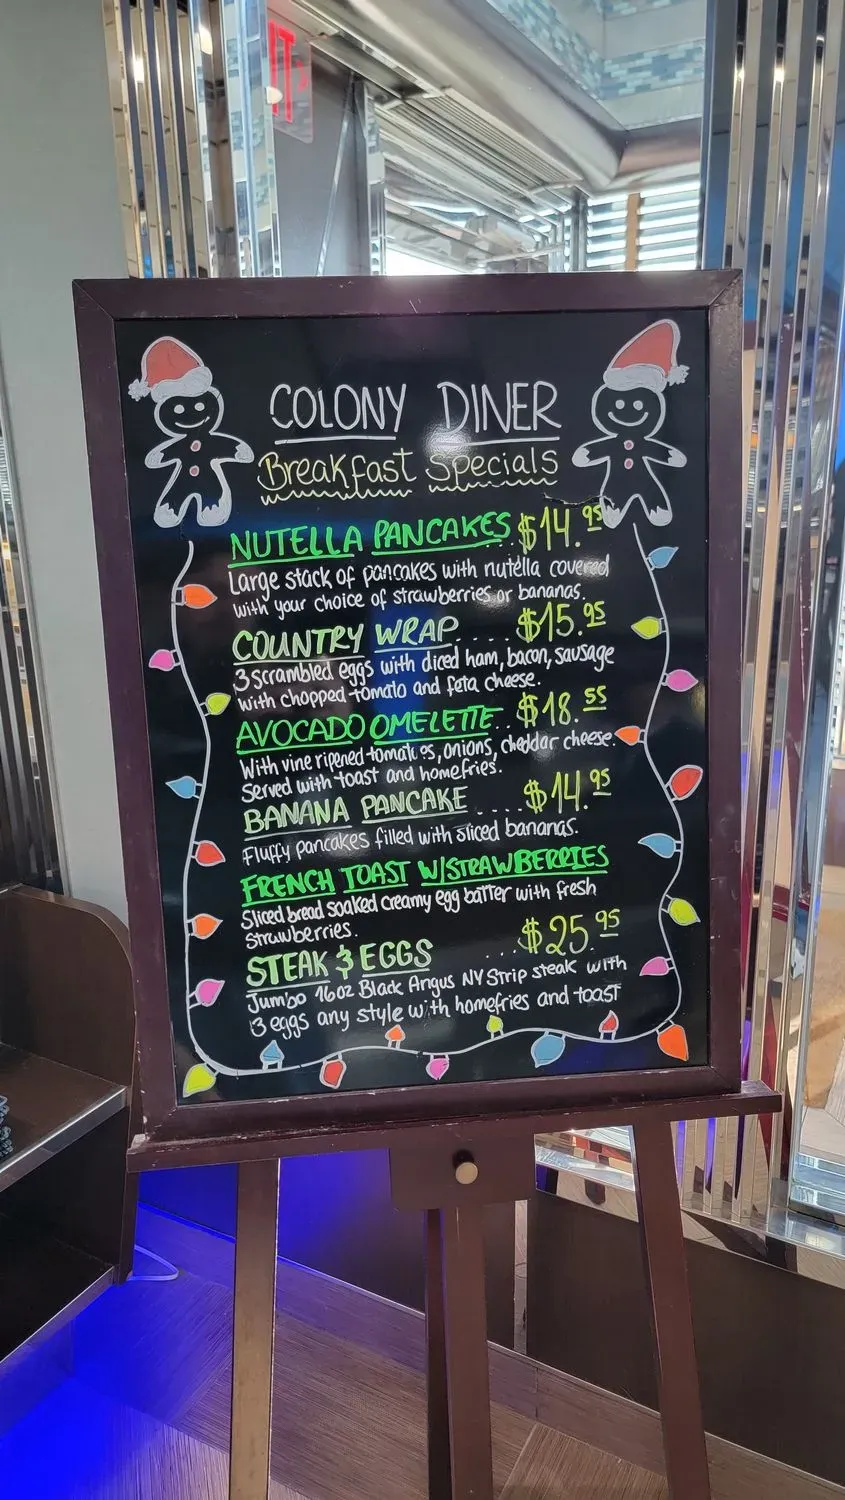 IT
COLONY DINER
Breakfast Specials
NUTELLA PANCAKES... $14.95
Large stack of pancakes with nutella covered
with your choice of strawberries or bananas.
COUNTRY WRAP.... $15.95
3 scrambled eggs with diced ham, bacon, sausage
with chopped tomato and feta cheese.
AVOCADO OMELETTE.. $18.55
With vine ripened tomatoes, onions, cheddar cheese.
Served with toast and homefries.
BANANA PANCAKE .... $14.95
Fluffy pancakes filled with sliced bananas.
FRENCH TOAST W/STRAWBERRIES
Sliced bread soaked creamy egg batter with fresh
strawberries.
STEAK & EGGS ... $25.95
Jumbo 16oz Black Angus NY Strip steak with
3 eggs any style with homefries and toast